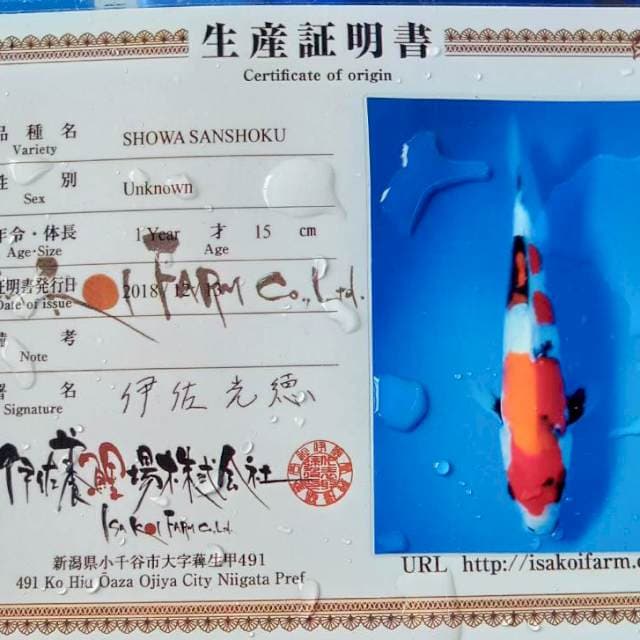 生産証明書
Certificate of origin
品種名
Variety
SHOWA SANSHOKU
性別
Sex
Unknown
年令・体長
Age・Size
1 Year 才 15 cm
Age
証明書発行日
Date of issue
2018/12/13
KOI FARM Co., Ltd.
備考
Note
署名
Signature
伊佐光徳
伊佐養鯉場株式会社
ISA KOI FARM Co.Ltd.
新潟県小千谷市大字薭生甲491
491 Ko Hiu Oaza Ojiya City Niigata Pref
URL http://isakoifarm.c